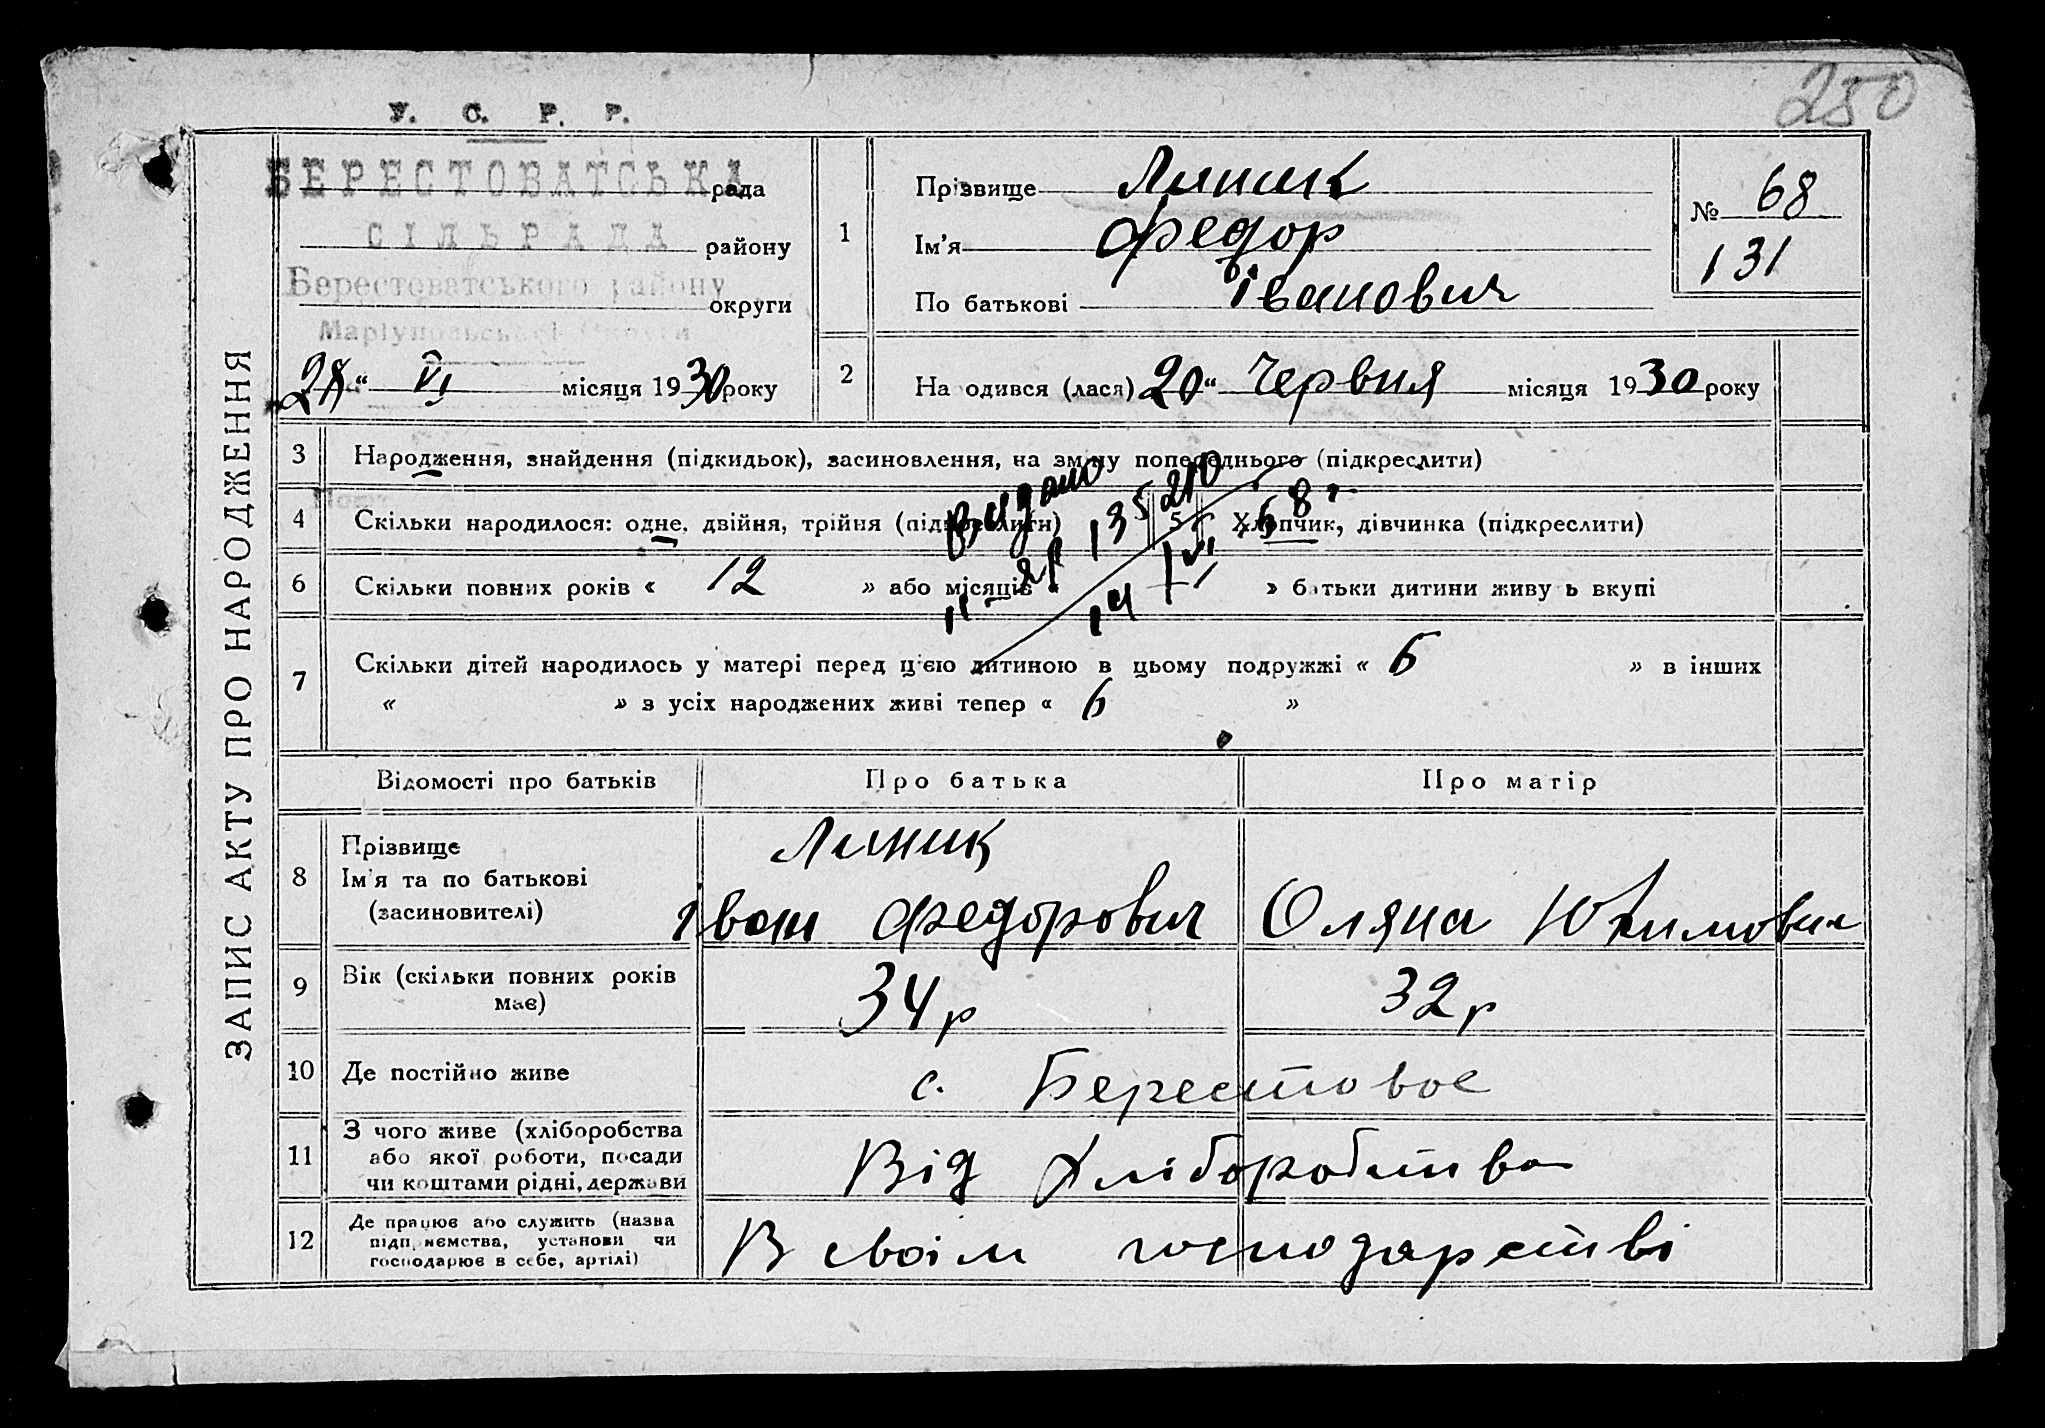 250
У. С. Р. Р.
БЕРЕСТОВАТСЬКА рада
СІЛЬРАДА району
Берестоватського району округи
Маріупольської Округи
28 „ VI місяця 1930 року
ЗАПИС АКТУ ПРО НАРОДЖЕННЯ
1 Прізвище Линик
Ім'я Федор
По батькові Іванович
№ 68
131
2 На одився (лася) 20 „ Червня місяця 1930 року
3 Народження, знайдення (підкидьок), засиновлення, на зміну попереднього (підкреслити)
4 Скільки народилося: одне, двійня, трійня (підкреслити) 5 Хлопчик, дівчинка (підкреслити)
Видано
6 Скільки повних років « 12 » або місяців « » батьки дитини живу ь вкупі
7 Скільки дітей народилось у матері перед ц'єю дитиною в цьому подружжі « 6 » в інших
« » з усіх народжених живі тепер « 6 »
Відомості про батьків Про батька Про матір
8 Прізвище
Ім'я та по батькові
(засиновителі)
Линик
Іван Федорович Оляна Юхимович
9 Вік (скільки повних років
має)
34 р 32 р
10 Де постійно живе с. Берестовое
11 З чого живе (хліборобства
або якої роботи, посади
чи коштами рідні, держави
Від Хліборобства
12 Де працює або служить (назва
підприємства, установи чи
господарює в себе, артілі)
В своїм господарстві